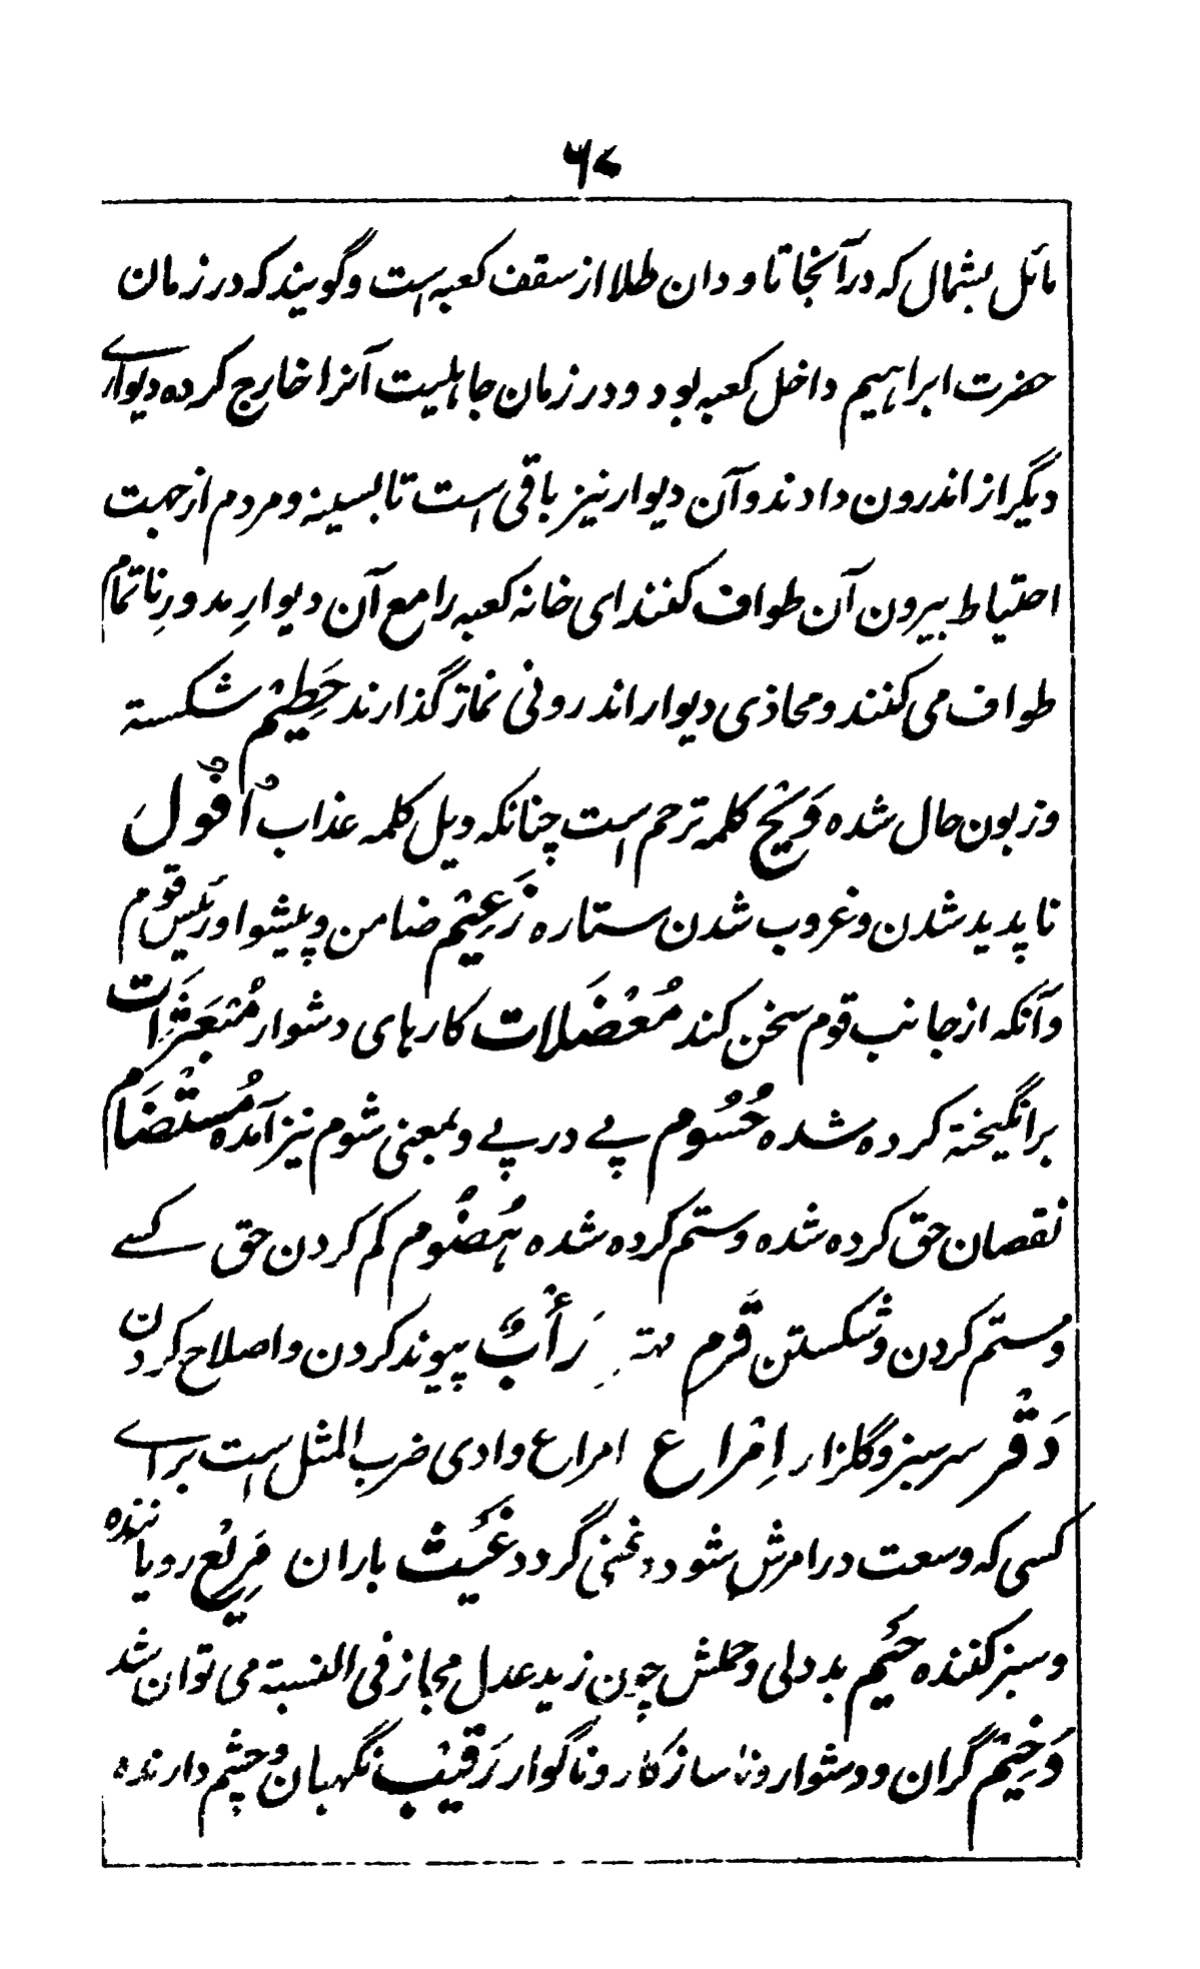 ۶۷
مائل بشمال که در آنجا ناودان طلا از سقف کعبه است و گویند که در زمان
حضرت ابراہیم داخل کعبہ بود و در زمان جاہلیت آنرا خارج کردہ دیوارے
دیگر از اندرون دادند و آن دیوار نیز باقی است تا بسینہ و مردم از جہت
احتیاط بیرون آن طواف کنند ای خانہ کعبہ را مع آن دیوارِ مدورِ ناتمام
طواف می کنند و محاذی دیوار اندرونی نماز گذارند حَطِیْم شکستہ
و زبون حال شدہ وَیْح کلمہ ترحم است چنانکہ ویل کلمہ عذاب اُفُوْل
ناپدید شدن و غروب شدن ستارہ زَعِیْم ضامن و پیشوا و رئیس قوم
و آنکہ از جانب قوم سخن کند مُعْضَلات کارہای دشوار مُتَبَعْثِرَات
برانگیختہ کردہ شدہ حُسُوْم پے در پے و بمعنی شوم نیز آمدہ مُسْتَضَام
نقصان حق کردہ شدہ و ستم کردہ شدہ ہُضُوْم کم کردن حق کسے
و ستم کردن و شکستن قَرم مہتر رَأبٌ پیوند کردن و اصلاح کردن
سرسبز و گلزار اِمْرَاع امراع وادی ضرب المثل است براے
کسی کہ وسعت در امرش شود و غنی گردد غَیْث باران مَرِیْع رویانندہ
و سبز کنندہ بددلی و حملش چون زید عدل مجاز فی النسبتہ می توان شد
وَخِیْم گران و دشوار و ناسازکار و ناگوار رَقِیْب نگہبان و چشم دارندہ